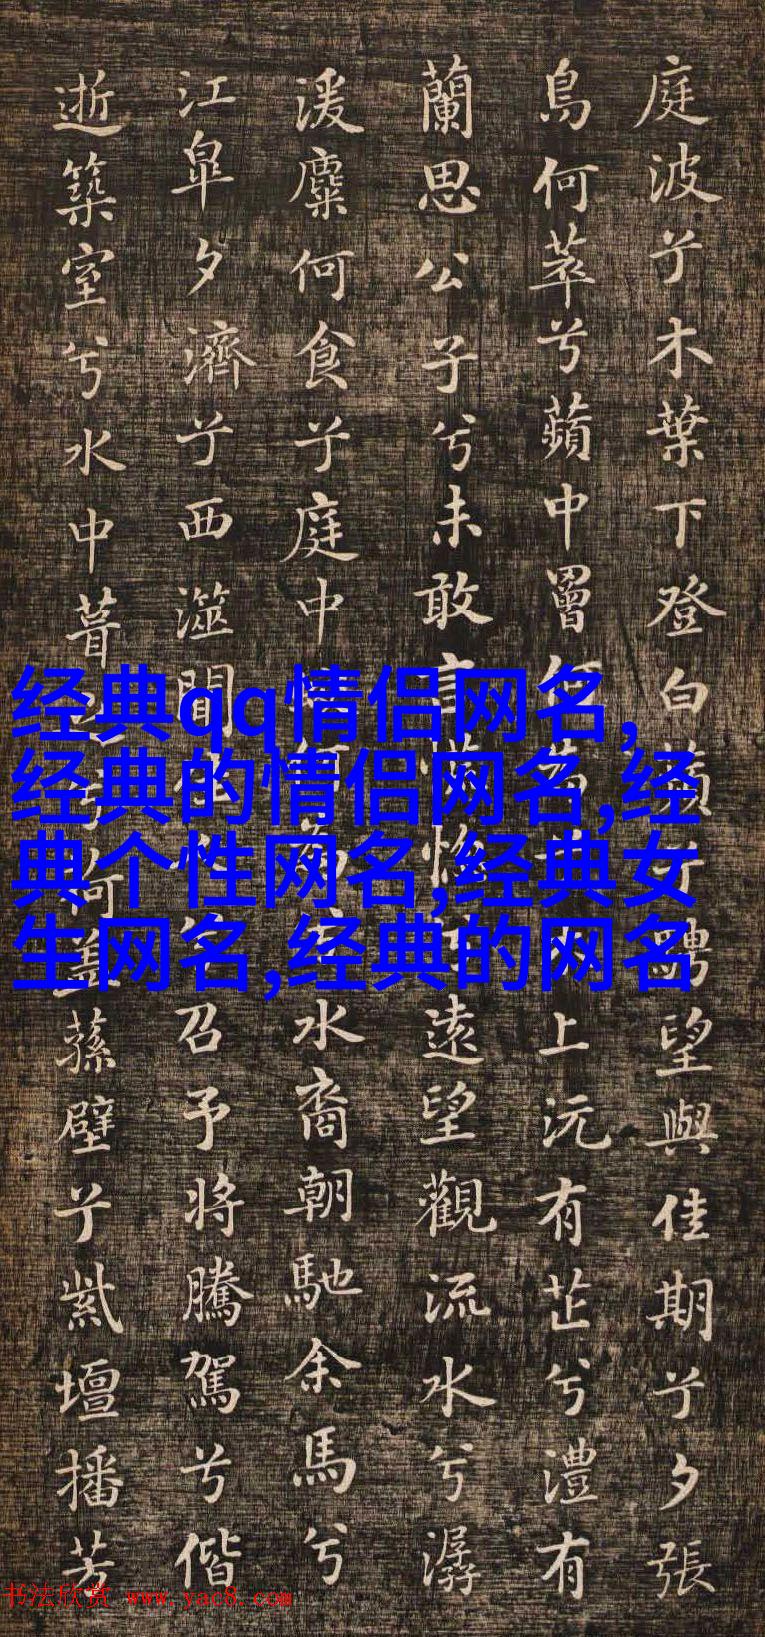 庭波兮木葉下登白蘋兮騁望與佳期兮夕張
鳥何萃兮蘋中罾何上沅有芷兮澧有
蘭思公子兮未敢言遠望觀流水兮潺
湲麋何食兮庭中水裔朝馳余馬兮
江皋夕濟兮西澨聞召予將騰駕兮偕
逝築室兮水中葺荷蓋蓀壁兮紫壇播芳
经典qq情侣网名,
经典的情侣网名,经
典个性网名,经典女
生网名,经典的网名
书法欣赏 www.yac8.com